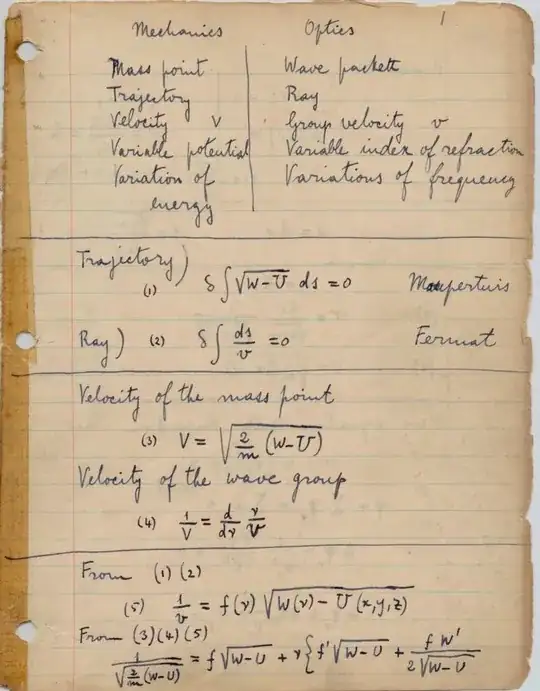 1
Mechanics Optics
Mass point Wave packett
Trajectory Ray
Velocity V Group velocity v
Variable potential Variable index of refraction
Variation of energy Variations of frequency
Trajectory)
(1) δ ∫ √(W-U) ds = 0 Maupertuis
Ray) (2) δ ∫ ds/v = 0 Fermat
Velocity of the mass point
(3) V = √(2/m (W-U))
Velocity of the wave group
(4) 1/V = d/dν ν/v
From (1) (2)
(5) 1/v = f(ν) √(W(ν) - U(x,y,z))
From (3) (4) (5)
1/√(2/m (W-U)) = f √(W-U) + ν { f' √(W-U) + f W'/(2√(W-U))